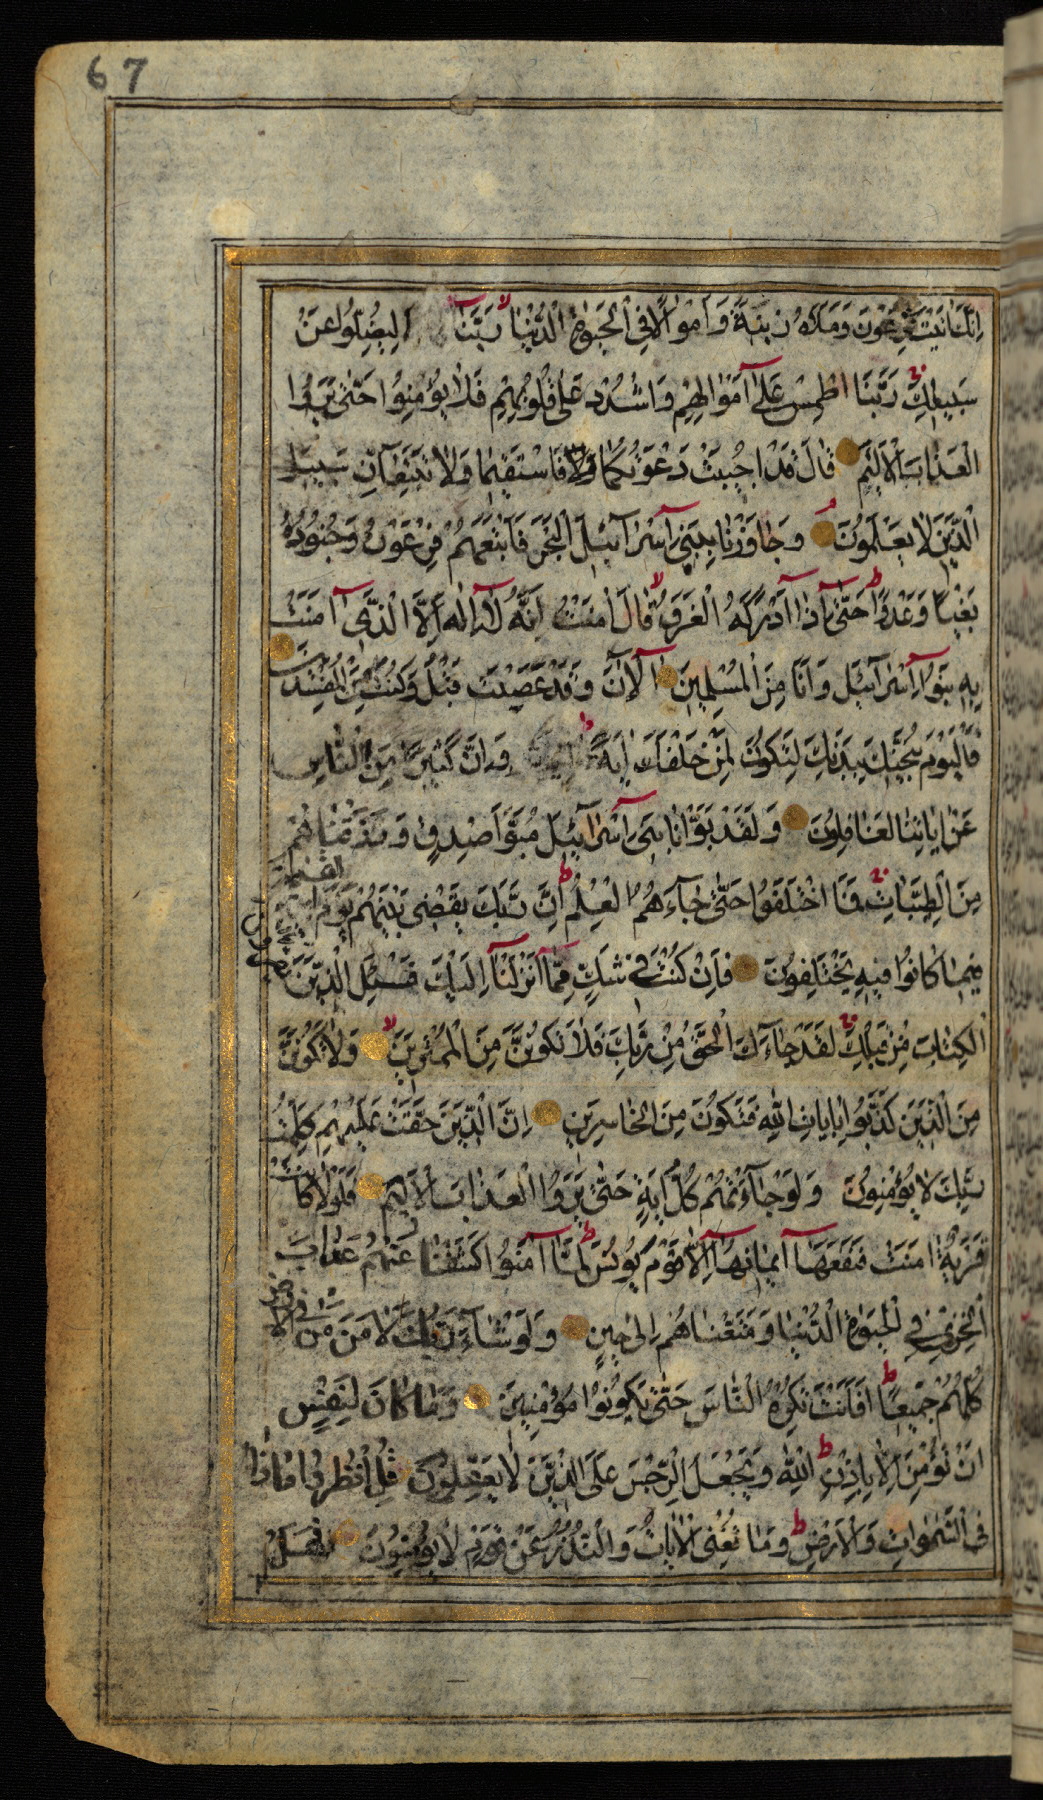 67
اِنَّكَ اٰتَيْتَ فِرْعَوْنَ وَمَلَاَهُ زِينَةً وَاَمْوٰالًا فِى الْحَيٰوةِ الدُّنْيٰا رَبَّنٰا لِيُضِلُّوا عَنْ
سَبِيلِكَ رَبَّنَا اطْمِسْ عَلٰٓى اَمْوٰالِهِمْ وَاشْدُدْ عَلٰى قُلُوبِهِمْ فَلٰا يُؤْمِنُوا حَتّٰى يَرَوُا
الْعَذٰابَ الْاَلِيمَ قٰالَ قَدْ اُجِيبَتْ دَعْوَتُكُمٰا فَاسْتَقِيمٰا وَلٰا تَتَّبِعٰٓانِّ سَبِيلَ
الَّذِينَ لٰا يَعْلَمُونَ وَجٰاوَزْنٰا بِبَنِٓى اِسْرٰٓائِيلَ الْبَحْرَ فَاَتْبَعَهُمْ فِرْعَوْنُ وَجُنُودُهُ
بَغْيًا وَعَدْوًا حَتّٰٓى اِذٰٓا اَدْرَكَهُ الْغَرَقُ قٰالَ اٰمَنْتُ اَنَّهُ لٰٓا اِلٰهَ اِلَّا الَّذِٓى اٰمَنَتْ
بِهِ بَنُٓوا اِسْرٰٓائِيلَ وَاَنَا مِنَ الْمُسْلِمِينَ آلْآنَ وَقَدْ عَصَيْتَ قَبْلُ وَكُنْتَ مِنَ الْمُفْسِدِينَ
فَالْيَوْمَ نُنَجِّيكَ بِبَدَنِكَ لِتَكُونَ لِمَنْ خَلْفَكَ اٰيَةً وَاِنَّ كَثِيرًا مِنَ النّٰاسِ
عَنْ اٰيٰاتِنٰا لَغٰافِلُونَ وَلَقَدْ بَوَّاْنٰا بَنِٓى اِسْرٰٓائِيلَ مُبَوَّاَ صِدْقٍ وَرَزَقْنٰاهُمْ
مِنَ الطَّيِّبٰاتِ فَمَا اخْتَلَفُوا حَتّٰى جٰٓاءَهُمُ الْعِلْمُ اِنَّ رَبَّكَ يَقْضِى بَيْنَهُمْ يَوْمَ الْقِيٰمَةِ
فِيمٰا كٰانُوا فِيهِ يَخْتَلِفُونَ فَاِنْ كُنْتَ فِى شَكٍّ مِمّٰٓا اَنْزَلْنٰٓا اِلَيْكَ فَسْئَلِ الَّذِينَ يَقْرَؤُنَ
الْكِتٰابَ مِنْ قَبْلِكَ لَقَدْ جٰٓاءَكَ الْحَقُّ مِنْ رَبِّكَ فَلٰا تَكُونَنَّ مِنَ الْمُمْتَرِينَ وَلٰا تَكُونَنَّ
مِنَ الَّذِينَ كَذَّبُوا بِاٰيٰاتِ اللّٰهِ فَتَكُونَ مِنَ الْخٰاسِرِينَ اِنَّ الَّذِينَ حَقَّتْ عَلَيْهِمْ كَلِمَتُ
رَبِّكَ لٰا يُؤْمِنُونَ وَلَوْ جٰٓاءَتْهُمْ كُلُّ اٰيَةٍ حَتّٰى يَرَوُا الْعَذٰابَ الْاَلِيمَ فَلَوْلٰا كٰانَتْ
قَرْيَةٌ اٰمَنَتْ فَنَفَعَهٰٓا اِيمٰانُهٰٓا اِلّٰا قَوْمَ يُونُسَ لَمّٰٓا اٰمَنُوا كَشَفْنٰا عَنْهُمْ عَذٰابَ
الْخِزْىِ فِى الْحَيٰوةِ الدُّنْيٰا وَمَتَّعْنٰاهُمْ اِلٰى حِينٍ وَلَوْ شٰٓاءَ رَبُّكَ لَاٰمَنَ مَنْ فِى الْاَرْضِ
كُلُّهُمْ جَمِيعًا اَفَاَنْتَ تُكْرِهُ النّٰاسَ حَتّٰى يَكُونُوا مُؤْمِنِينَ وَمٰا كٰانَ لِنَفْسٍ
اَنْ تُؤْمِنَ اِلّٰا بِاِذْنِ اللّٰهِ وَيَجْعَلُ الرِّجْسَ عَلَى الَّذِينَ لٰا يَعْقِلُونَ قُلِ انْظُرُوا مٰاذٰا
فِى السَّمٰوٰاتِ وَالْاَرْضِ وَمٰا تُغْنِى الْاٰيٰاتُ وَالنُّذُرُ عَنْ قَوْمٍ لٰا يُؤْمِنُونَ فَهَلْ